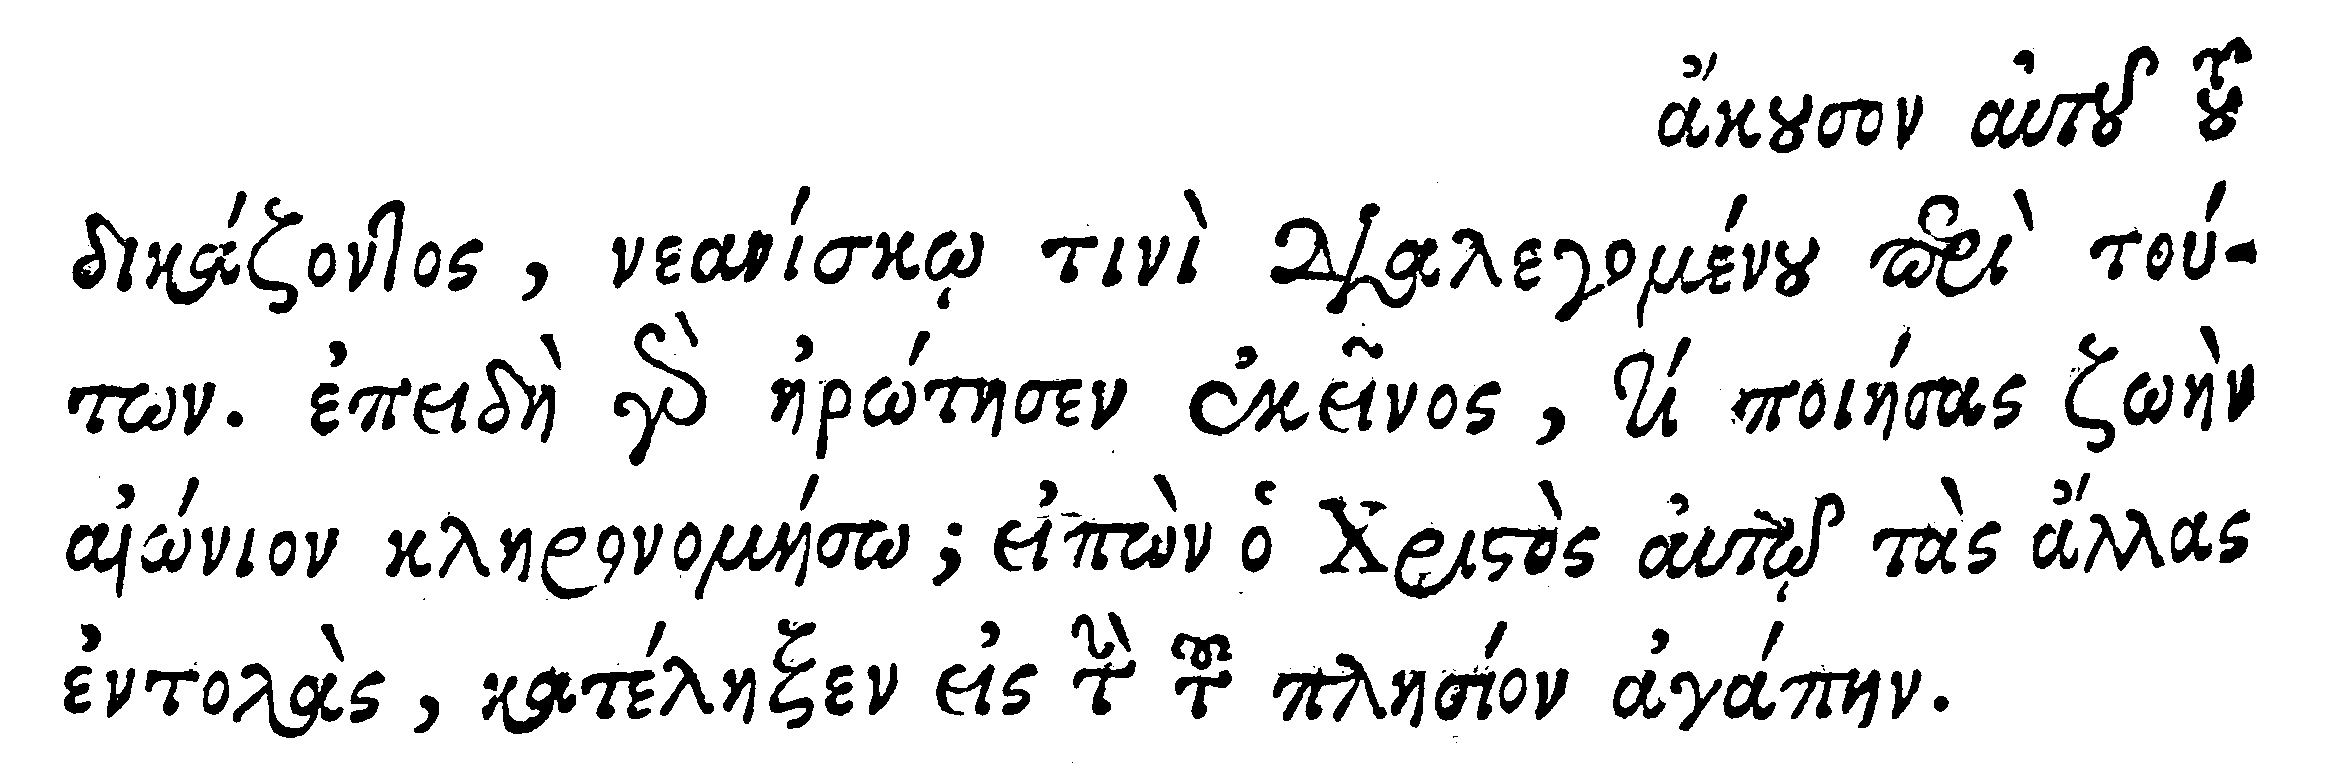 ἄκουσον αὐτοῦ τοῦ
δικάζοντος, νεανίσκῳ τινὶ διαλεγομένου περὶ τού-
των. ἐπειδὴ γὰρ ἠρώτησεν ἐκεῖνος, τί ποιήσας ζωὴν
αἰώνιον κληρονομήσω; εἰπὼν ὁ Χριστὸς αὐτῷ τὰς ἄλλας
ἐντολὰς, κατέληξεν εἰς τὴν τῶν πλησίον ἀγάπην.